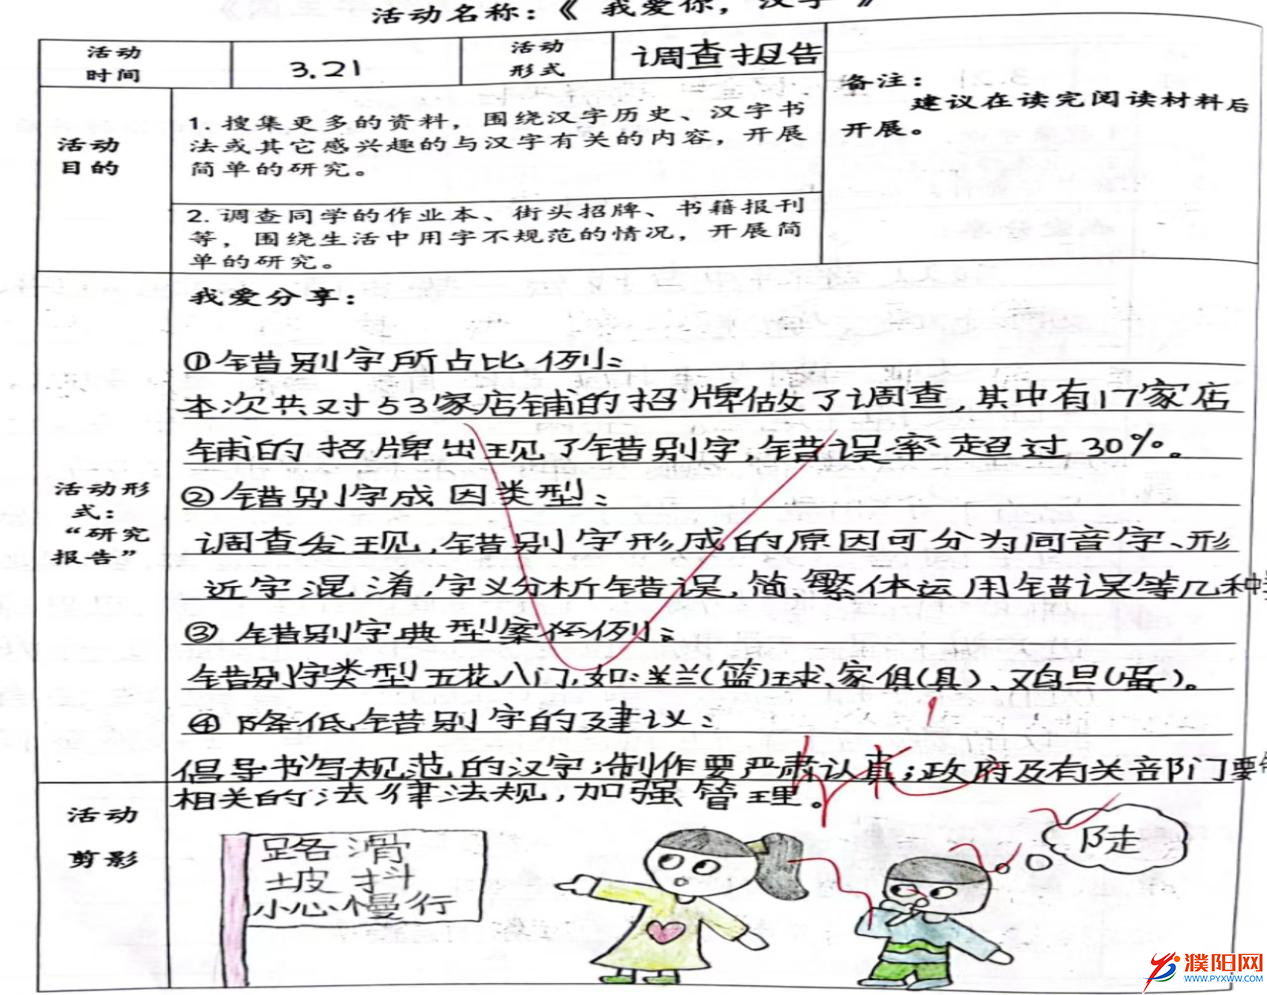 活动名称：《 我爱你，汉字 》
活动时间
3.21
活动形式
调查报告
备注：
建议在读完阅读材料后
开展。
活动目的
1. 搜集更多的资料，围绕汉字历史、汉字书
法或其它感兴趣的与汉字有关的内容，开展
简单的研究。
2. 调查同学的作业本、街头招牌、书籍报刊
等，围绕生活中用字不规范的情况，开展简
单的研究。
活动形式：“研究报告”
我爱分享：
①错别字所占比例：
本次共对53家店铺的招牌做了调查，其中有17家店
铺的招牌出现了错别字，错误率超过30%。
②错别字成因类型：
调查发现，错别字形成的原因可分为同音字、形
近字混淆，字义分析错误，简、繁体运用错误等几种
③错别字典型案例：
错别字类型五花八门，如：兰(篮)球、家俱(具)、鸡旦(蛋)。
④降低错别字的建议：
倡导书写规范的汉字；制作要严肃认真；政府及有关部门要
相关的法律法规，加强管理。
活动剪影
路滑
坡抖
小心慢行
陡
濮阳网
WWW.PYXWW.COM